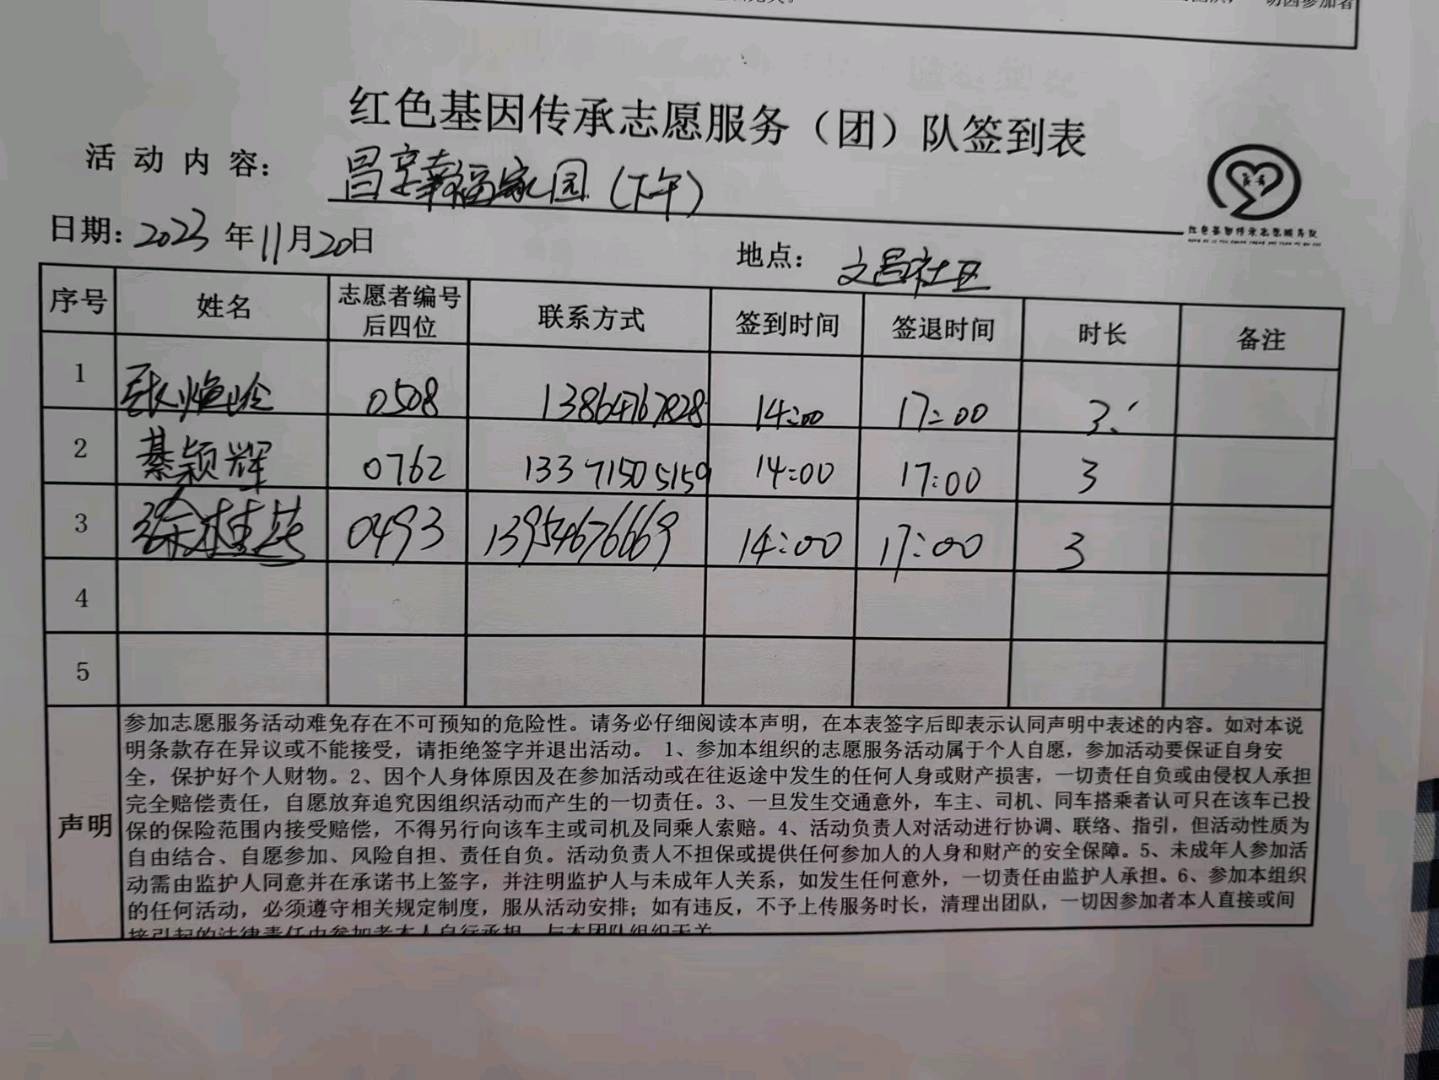 红色基因传承志愿服务（团）队签到表
活动内容：昌宁幸福家园（下午）
日期：2023年11月20日 地点：文昌社区
序号 姓名 志愿者编号后四位 联系方式 签到时间 签退时间 时长 备注
1 张焕玲 0508 13864767828 14:00 17:00 3
2 綦颖辉 0762 13371505159 14:00 17:00 3
3 徐桂英 0493 13954676669 14:00 17:00 3
4
5
声明
参加志愿服务活动难免存在不可预知的危险性。请务必仔细阅读本声明，在本表签字后即表示认同声明中表述的内容。如对本说
明条款存在异议或不能接受，请拒绝签字并退出活动。 1、参加本组织的志愿服务活动属于个人自愿，参加活动要保证自身安
全，保护好个人财物。2、因个人身体原因及在参加活动或在往返途中发生的任何人身或财产损害，一切责任自负或由侵权人承担
完全赔偿责任，自愿放弃追究因组织活动而产生的一切责任。3、一旦发生交通意外，车主、司机、同车搭乘者认可只在该车已投
保的保险范围内接受赔偿，不得另行向该车主或司机及同乘人索赔。4、活动负责人对活动进行协调、联络、指引，但活动性质为
自由结合、自愿参加、风险自担、责任自负。活动负责人不担保或提供任何参加人的人身和财产的安全保障。5、未成年人参加活
动需由监护人同意并在承诺书上签字，并注明监护人与未成年人关系，如发生任何意外，一切责任由监护人承担。6、参加本组织
的任何活动，必须遵守相关规定制度，服从活动安排；如有违反，不予上传服务时长，清理出团队，一切因参加者本人直接或间
接引起的法律责任由参加者本人自行承担，与本团队组织无关